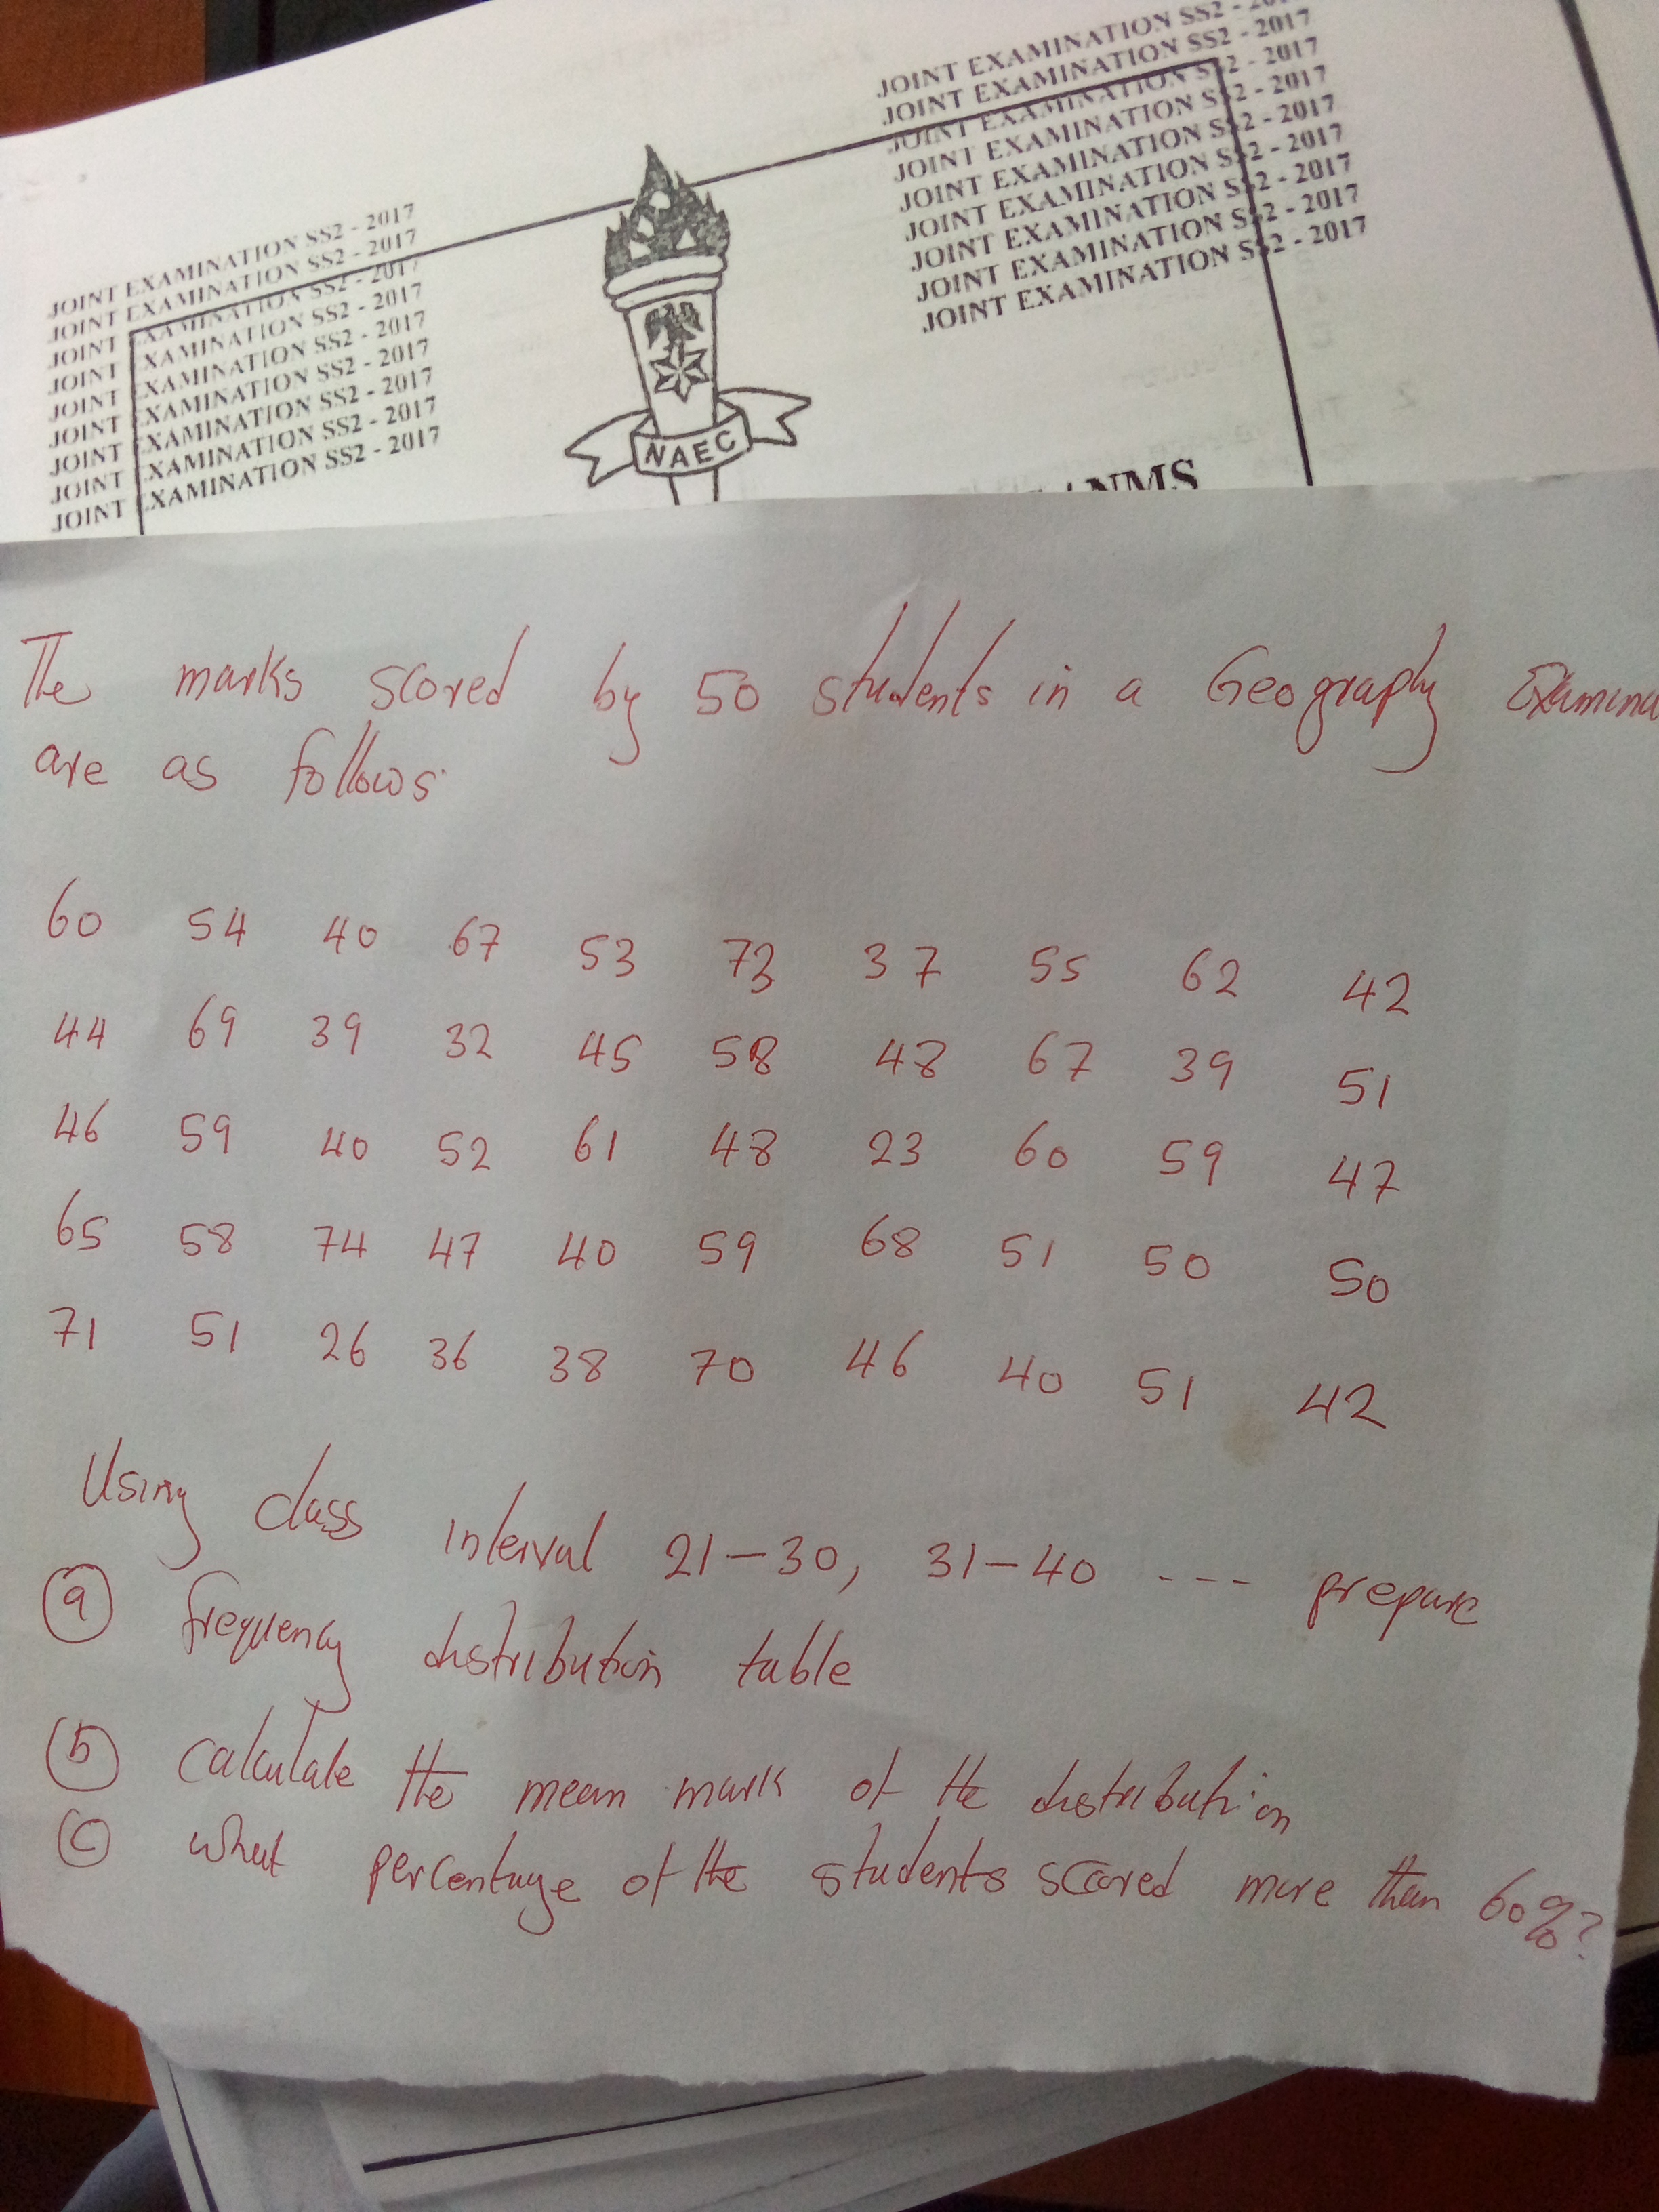 JOINT EXAMINATION SS2 - 2017
JOINT EXAMINATION SS2 - 2017
JOINT EXAMINATION SS2 - 2017
JOINT EXAMINATION SS2 - 2017
JOINT EXAMINATION SS2 - 2017
JOINT EXAMINATION SS2 - 2017
JOINT EXAMINATION SS2 - 2017
JOINT EXAMINATION SS2 - 2017
JOINT EXAMINATION SS2 - 2017
JOINT EXAMINATION SS2
JOINT EXAMINATION SS2 - 2017
JOINT EXAMINATION SS2 - 2017
JOINT EXAMINATION SS2 - 2017
JOINT EXAMINATION SS2 - 2017
JOINT EXAMINATION SS2 - 2017
JOINT EXAMINATION SS2 - 2017
JOINT EXAMINATION SS2 - 2017
JOINT EXAMINATION SS2 - 2017
NAEC
NMS
The marks scored by 50 students in a Geography Examina
are as follows:
60 54 40 67 53 73 37 55 62 42
44 69 39 32 45 58 48 67 39 51
46 59 40 52 61 48 23 60 59 47
65 58 74 47 40 59 68 51 50 50
71 51 26 36 38 70 46 40 51 42
Using class interval 21-30, 31-40 --- prepare
(a) frequency distribution table
(b) calculate the mean mark of the distribution
(c) what percentage of the students scored more than 60%?